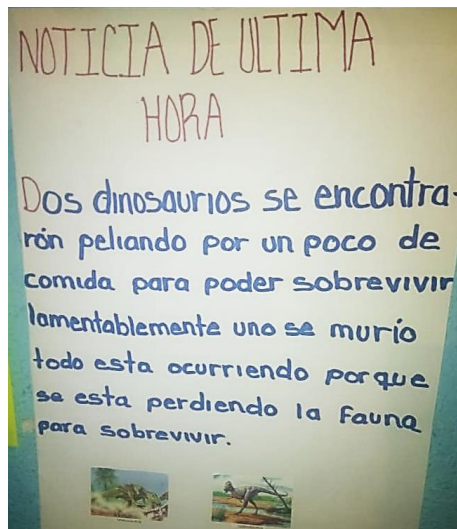 NOTICIA DE ULTIMA
HORA
Dos dinosaurios se encontra-
rón peliando por un poco de
comida para poder sobrevivir
lamentablemente uno se murío
todo esta ocurriendo porque
se esta perdiendo la fauna
para sobrevivir.